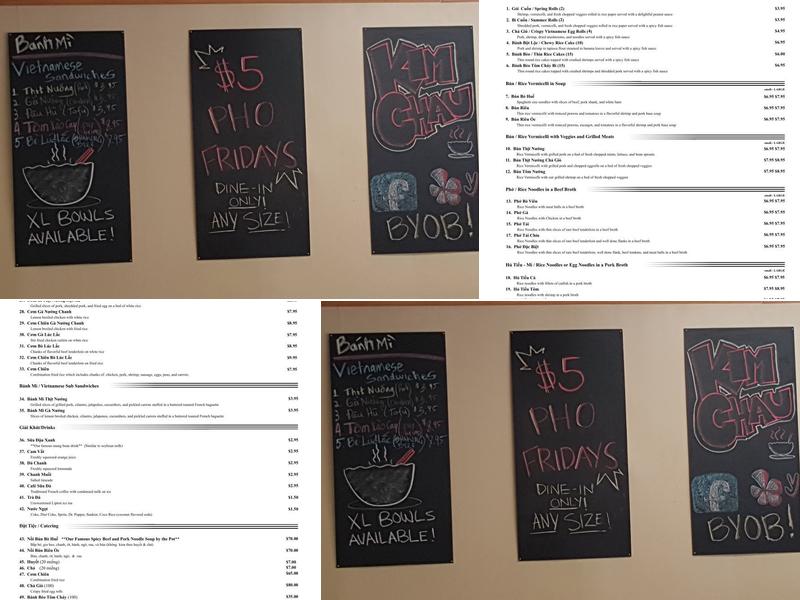 Bánh Mì
Vietnamese
Sandwiches
1 Thịt Nướng (Pork) $3.95
2 Gà Nướng
3 Đậu Hủ (Tofu) $3.95
4 Tôm
5 Bì
XL BOWLS
AVAILABLE!
$5
PHO
FRIDAYS
DINE-IN
ONLY!
ANY SIZE!
KIM
CHAU
f
BYOB!
1. Gỏi Cuốn / Spring Rolls (2) $3.95
Shrimp, vermicelli, and fresh chopped veggies rolled in rice paper served with a delightful peanut sauce
2. Bì Cuốn / Summer Rolls (2) $3.95
Shredded pork, vermicelli, and fresh chopped veggies rolled in rice paper served with a spicy fish sauce
3. Chả Giò / Crispy Vietnamese Egg Rolls (4) $4.95
Pork, shrimp, dried mushrooms, and noodles served with a spicy fish sauce
4. Bánh Bột Lọc / Chewy Rice Cake (10) $6.95
Pork and shrimp in tapioca flour steamed in banana leaves and served with spicy fish sauce
5. Bánh Bèo / Thin Rice Cakes (15) $6.00
Thin round rice cakes topped with crushed shrimps served with a spicy fish sauce
6. Bánh Bèo Tôm Cháy Bì (15) $6.95
Thin round rice cakes topped with crushed shrimp and shredded pork served with spicy fish sauce
Bún / Rice Vermicelli in Soup
small / LARGE
7. Bún Bò Huế $6.95 $7.95
Spaghetti size noodles with slices of beef, pork shank, and white ham
8. Bún Riêu $6.95 $7.95
Thin rice vermicelli with minced prawns and tomatoes in a flavorful shrimp and pork base soup
9. Bún Riêu Ốc $6.95 $7.95
Thin rice vermicelli with minced prawns, escargot, and tomatoes in a flavorful shrimp and pork base soup
Bún / Rice Vermicelli with Veggies and Grilled Meats
small / LARGE
10. Bún Thịt Nướng $6.95 $7.95
Rice Vermicelli with grilled pork on a bed of fresh chopped mints, lettuce, and bean sprouts
11. Bún Thịt Nướng Chả Giò $7.95 $8.95
Rice Vermicelli with grilled pork and chopped eggrolls on a bed of fresh chopped veggies
12. Bún Tôm Nướng $7.95 $8.95
Rice Vermicelli with our grilled shrimp on a bed of fresh chopped veggies
Phở / Rice Noodles in a Beef Broth
small / LARGE
13. Phở Bò Viên $6.95 $7.95
Rice Noodles with meat balls in a beef broth
14. Phở Gà $6.95 $7.95
Rice Noodles with Chicken in a beef broth
15. Phở Tái $6.95 $7.95
Rice Noodles with thin slices of rare beef tenderloin in a beef broth
17. Phở Tái Chín $6.95 $7.95
Rice Noodles with thin slices of rare beef tenderloin and well done flanks in beef broth
16. Phở Đặc Biệt $6.95 $7.95
Rice Noodles with thin slices of rare beef tenderloin, well done flank, beef tendons, and meat balls in a beef broth
Hủ Tiếu - Mì / Rice Noodles or Egg Noodles in a Pork Broth
small / LARGE
18. Hủ Tiếu Cá $6.95 $7.95
Rice noodles with fillets of catfish in a pork broth
19. Hủ Tiếu Tôm $6.95 $7.95
Rice noodles with shrimp in a pork broth
Grilled slices of pork, shredded pork, and fried egg on a bed of white rice
28. Cơm Gà Nướng Chanh $7.95
Lemon broiled chicken with white rice
29. Cơm Chiên Gà Nướng Chanh $8.95
Lemon broiled chicken with fried rice
30. Cơm Gà Lúc Lắc $7.95
Stir fried chicken cutlets on white rice
31. Cơm Bò Lúc Lắc $8.95
Chunks of flavorful beef tenderloin on white rice
32. Cơm Chiên Bò Lúc Lắc $9.95
Chunks of flavorful beef tenderloin on fried rice
33. Cơm Chiên $7.95
Combination fried rice which includes chunks of: chicken, pork, shrimp, sausage, eggs, peas, and carrots.
Bánh Mì / Vietnamese Sub Sandwiches
34. Bánh Mì Thịt Nướng $3.95
Grilled slices of grilled pork, cilantro, jalapenos, cucumbers, and pickled carrots stuffed in a buttered toasted French baguette
35. Bánh Mì Gà Nướng $3.95
Slices of lemon broiled chicken, cilantro, jalapenos, cucumbers, and pickled carrots stuffed in a buttered toasted French baguette
Giải Khát/Drinks
36. Sữa Đậu Xanh $2.95
**Our famous mung bean drink** (Similar to soybean milk)
37. Cam Vắt $2.95
Freshly squeezed orange juice
38. Đá Chanh $2.95
Freshly squeezed lemonade
39. Chanh Muối $2.95
Salted limeade
40. Café Sữa Đá $2.95
Traditional French coffee with condensed milk on ice
41. Trà Đá $1.50
Unsweetened Lipton ice tea
42. Nước Ngọt $1.50
Coke, Diet Coke, Sprite, Dr. Pepper, Sunkist, Coco Rico (coconut flavored soda)
Đặt Tiệc / Catering
43. Nồi Bún Bò Huế **Our Famous Spicy Beef and Pork Noodle Soup by the Pot** $70.00
44. Nồi Bún Riêu Ốc $70.00
45. Huyết (20 miếng) $7.00
46. Chả (20 miếng) $7.00
47. Cơm Chiên $65.00
Combination fried rice
48. Chả Giò (100) $80.00
Crispy fried egg rolls
49. Bánh Bèo Tôm Cháy (100) $35.00
Bánh Mì
Vietnamese
Sandwiches
1 Thịt Nướng (Pork) $3.95
2 Gà Nướng
3 Đậu Hủ (Tofu) $3.95
4 Tôm
5 Bì
XL BOWLS
AVAILABLE!
$5
PHO
FRIDAYS
DINE-IN
ONLY!
ANY SIZE!
KIM
CHAU
f
BYOB!